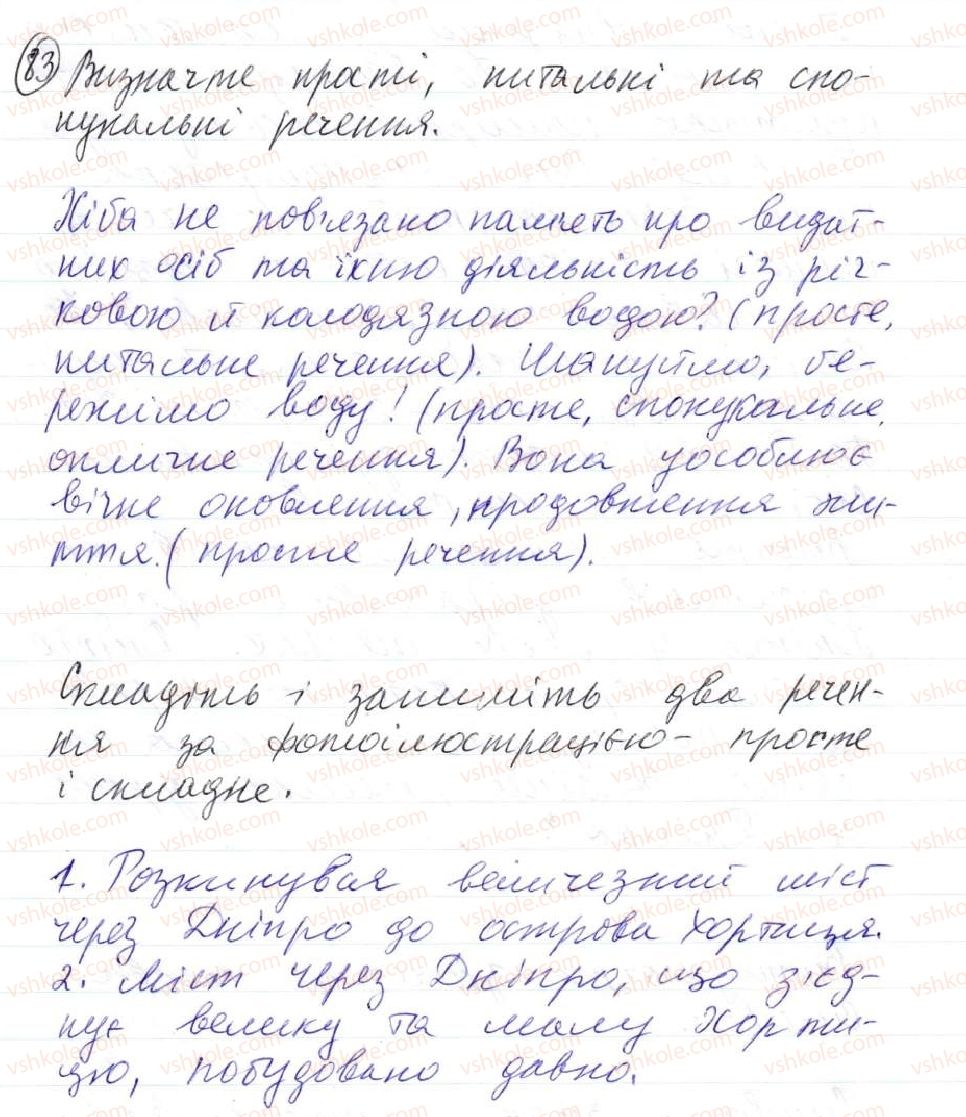 83 Визначте прості, питальні та спо-
нукальні речення.
Хіба не пов'язано память про видат-
них осіб та їхню діяльність із річ-
ковою й колодязною водою? (просте,
питальне речення). Шануймо, бе-
режімо воду! (просте, спонукальне,
окличне речення). Вона уособлює
вічне оновлення, продовження жи-
ття. (просте речення).
Складіть і запишіть два речен-
ня за фотоілюстрацією - просте
і складне.
1. Розкинувся величезний міст
через Дніпро до острова Хортиця.
2. Міст через Дніпро, що зєд-
нує велику та малу Хорти-
цю, побудовано давно.